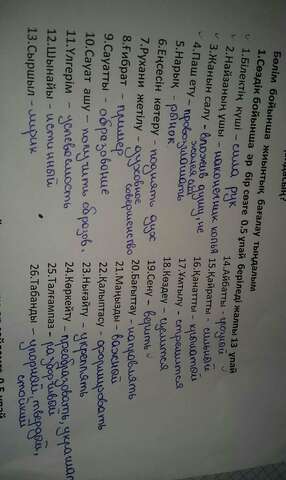 Бөлім бойынша жиынтық бағалау тыңдалым
1.Сөздік бойынша әр бір сөзге 0.5 ұпай беріледі жалпы 13 ұпай
1.Білектің күші - сила рук
2.Найзаның ұшы - наконечник копья
3.Жанын салу - вложив душу, не жалея себя
4.Паш ету - провозглашать
5.Нарық - рынок
6.Еңсесін көтеру - поднять дух
7.Рухани жетілу - духовное совершенство
8.Ғибрат - пример
9.Сауатты - образование
10.Сауат ашу - получить образов.
11.Үлгерім - успеваемость
12.Шынайы - истинный
13.Сыршыл - лирик
14.Айбатты - грозный
15.Қайратты - сильный
16.Қанатты - қуатты
17.Ұмтылу - стремится
18.Көздеу - целится
19.Сену - верить
20.Бағыттау - направлять
21.Маңызды - важной
22.Қалыптасу - формировать
23.Нығайту - укреплять
24.Көркейту - преобразовать, украшать
25.Талғампаз - разборчивый
26.Табанды - упорный, твердый, стойкий